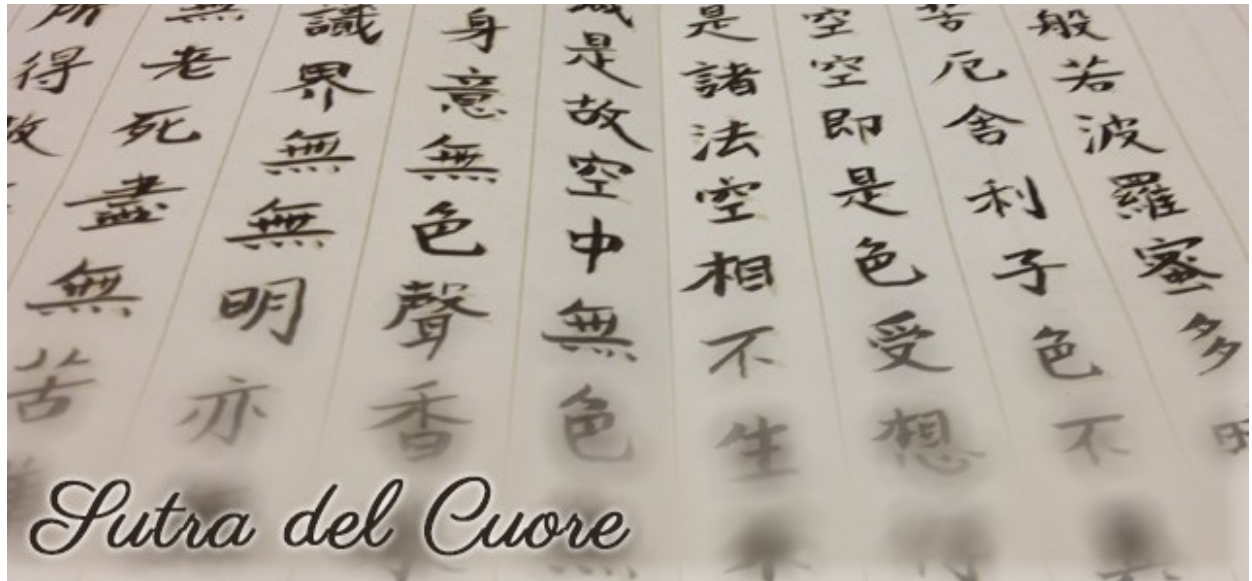 般若波羅蜜多
苦厄舍利子色不異
空空即是色受想行
是諸法空相不生不
滅是故空中無色無
身意無色聲香
識界無無明亦無
無老死盡無苦
所得故
Sutra del Cuore